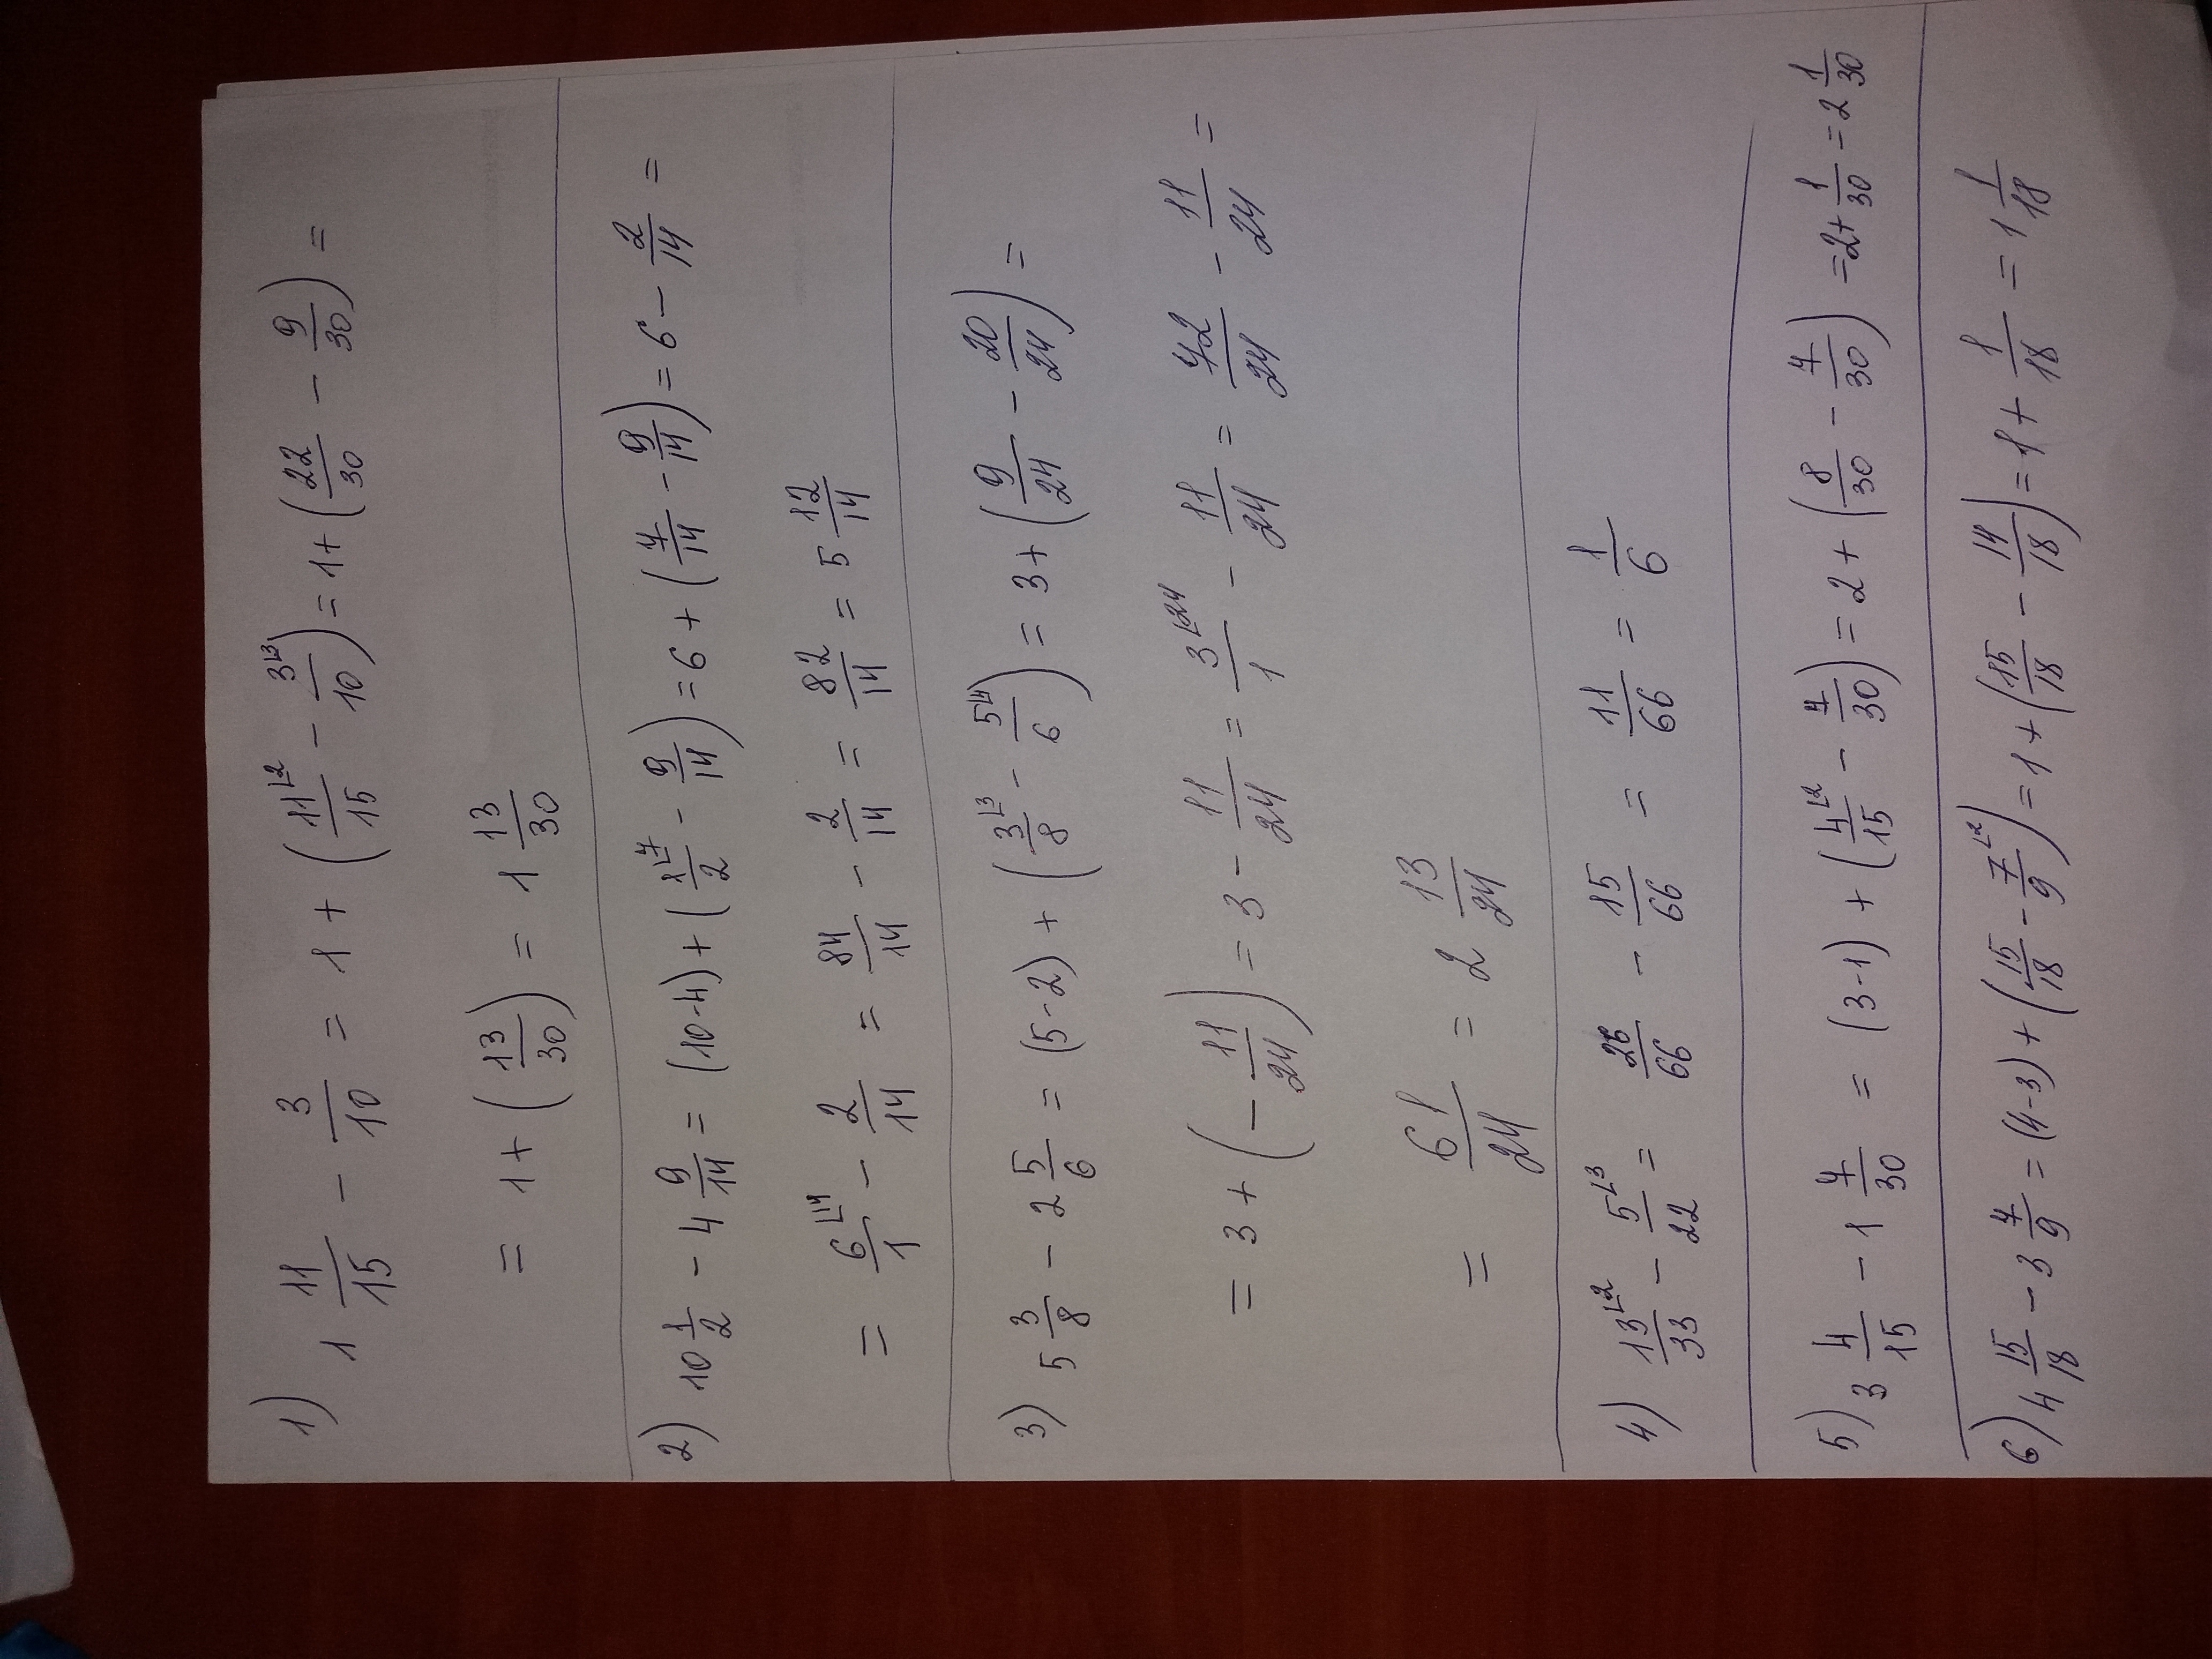 1) 1 11/15 - 3/10 = 1 + (11⌊2/15 - 3⌊3/10) = 1 + (22/30 - 9/30) =
= 1 + (13/30) = 1 13/30
2) 10 1/2 - 4 9/14 = (10-4) + (1⌊7/2 - 9/14) = 6 + (7/14 - 9/14) = 6 - 2/14 =
= 6⌊14/1 - 2/14 = 84/14 - 2/14 = 82/14 = 5 12/14
3) 5 3/8 - 2 5/6 = (5-2) + (3⌊3/8 - 5⌊4/6) = 3 + (9/24 - 20/24) =
= 3 + (- 11/24) = 3 - 11/24 = 3⌊24/1 - 11/24 = 72/24 - 11/24 =
= 61/24 = 2 13/24
4) 13⌊2/33 - 5⌊3/22 = 26/66 - 15/66 = 11/66 = 1/6
5) 3 4/15 - 1 7/30 = (3-1) + (4⌊2/15 - 7/30) = 2 + (8/30 - 7/30) = 2 + 1/30 = 2 1/30
6) 4 15/18 - 3 7/9 = (4-3) + (15/18 - 7⌊2/9) = 1 + (15/18 - 14/18) = 1 + 1/18 = 1 1/18